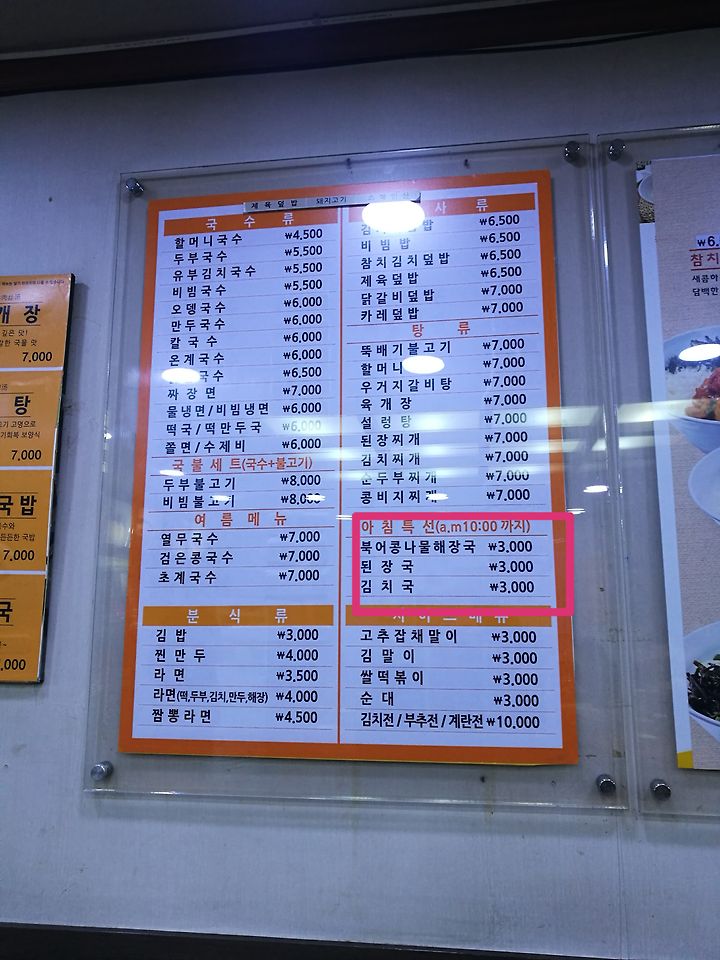 제육덮밥 돼지고기
국 수 류
할머니국수 ₩4,500
두부국수 ₩5,500
유부김치국수 ₩5,500
비빔국수 ₩5,500
오뎅국수 ₩6,000
만두국수 ₩6,000
칼 국 수 ₩6,000
온계국수 ₩6,000
국수 ₩6,500
짜 장 면 ₩7,000
물냉면/비빔냉면 ₩6,000
떡국/떡만두국 ₩6,000
쫄면/수제비 ₩6,000
국불세트(국수+불고기)
두부불고기 ₩8,000
비빔불고기 ₩8,000
여 름 메 뉴
열무국수 ₩7,000
검은콩국수 ₩7,000
초계국수 ₩7,000
분 식 류
김 밥 ₩3,000
찐 만 두 ₩4,000
라 면 ₩3,500
라면(떡,두부,김치,만두,해장) ₩4,000
짬뽕라면 ₩4,500
사 류
덮밥 ₩6,500
비 빔 밥 ₩6,500
참치김치덮밥 ₩6,500
제육덮밥 ₩6,500
닭갈비덮밥 ₩7,000
카레덮밥 ₩7,000
탕 류
뚝배기불고기 ₩7,000
할머니 ₩7,000
우거지갈비탕 ₩7,000
육 개 장 ₩7,000
설 렁 탕 ₩7,000
된장찌개 ₩7,000
김치찌개 ₩7,000
순두부찌개 ₩7,000
콩비지찌개 ₩7,000
아 침 특 선(a.m10:00 까지)
북어콩나물해장국 ₩3,000
된 장 국 ₩3,000
김 치 국 ₩3,000
사 이 드 메 뉴
고추잡채말이 ₩3,000
김 말 이 ₩3,000
쌀떡볶이 ₩3,000
순 대 ₩3,000
김치전/부추전/계란전 ₩10,000
개 장
깊은 맛!
국물 맛
7,000
탕
고명으로
기회복 보양식
7,000
국밥
든든한 국밥
7,000
국
,000
₩6,5
참치
새콤하
담백한